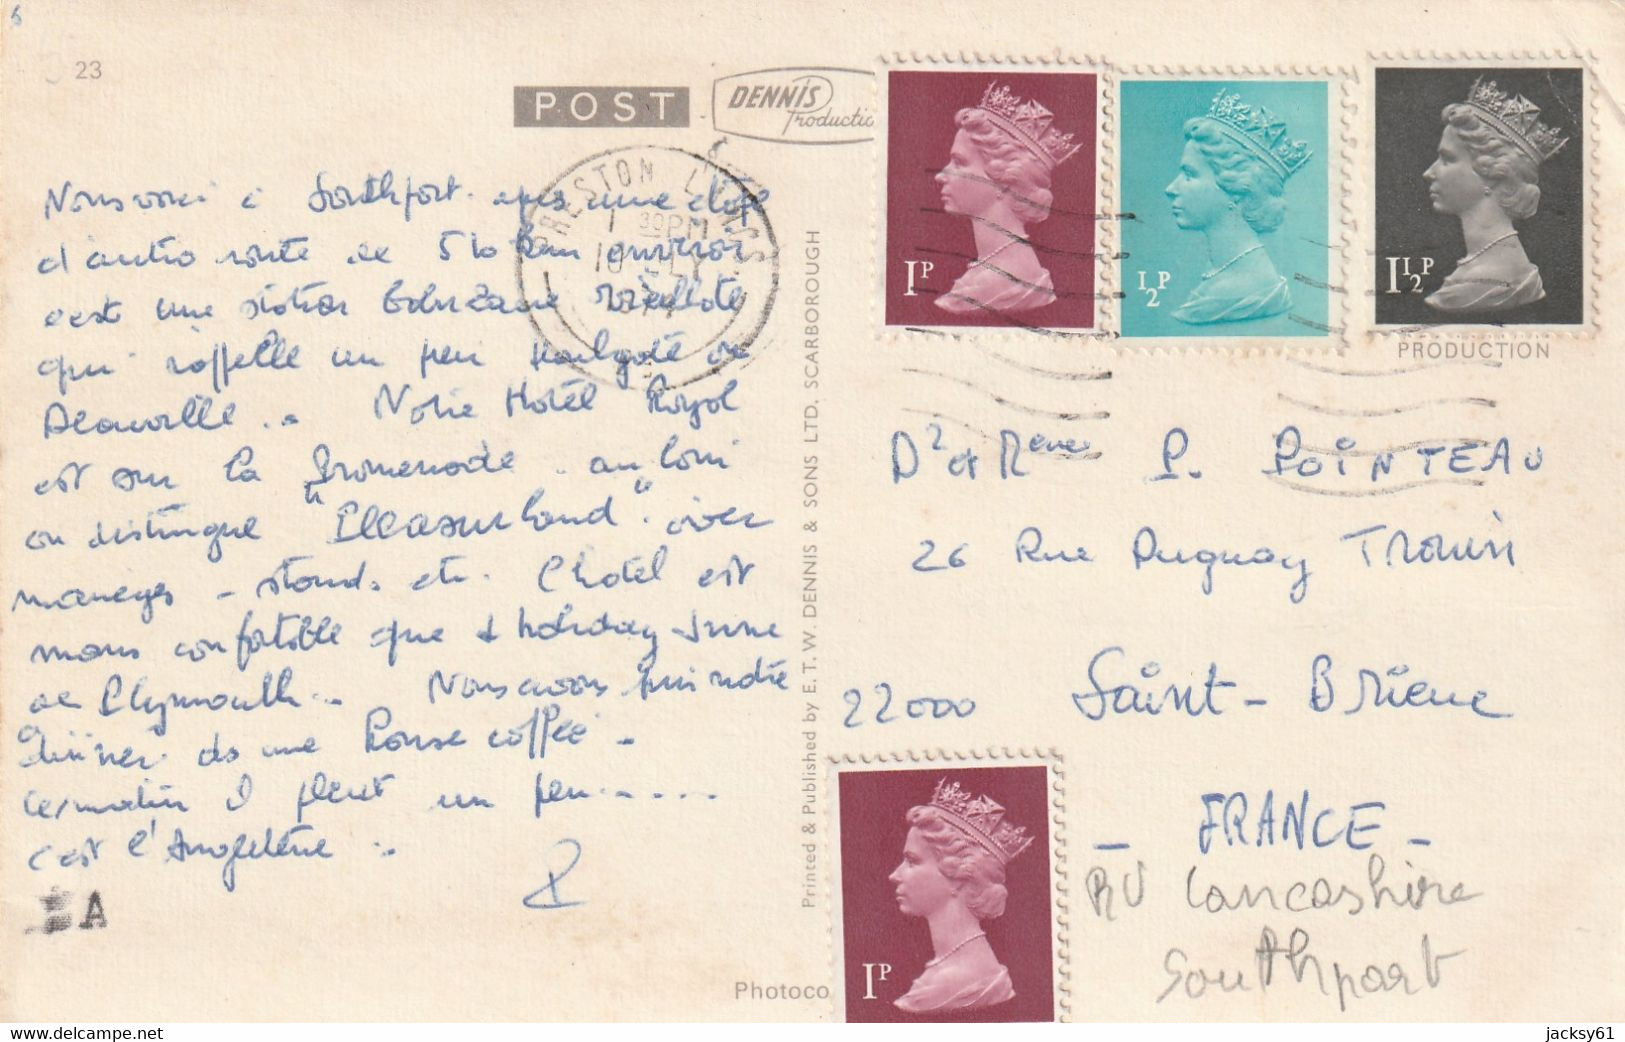 23
POST
DENNIS
Productio
PRESTON LANCS
30PM
1P
½P
1½P
PRODUCTION
Nous voici à Southport. après une étape
d'auto route de 510 km environ
c'est une station balnéaire vieillote
qui rappelle un peu Houlgate ou
Deauville .. Notre Hotel Royal
est sur la Promenade. au loin
on distingue "Pleasureland". avec
manèges - stands etc. L'hotel est
moins confortable que
de Plymouth .. Nous avons pris notre
dîner ds une
Ce matin il pleut un peu .....
C'est l'Angleterre ..
A
Printed & Published by E. T. W. DENNIS & SONS LTD. SCARBOROUGH
Photoco
P. POINTEAU
26 Rue Duguay Trouin
22000 Saint-Brieuc
- FRANCE -
1P
RU Lancashire
Southport
delcampe.net
jacksy61